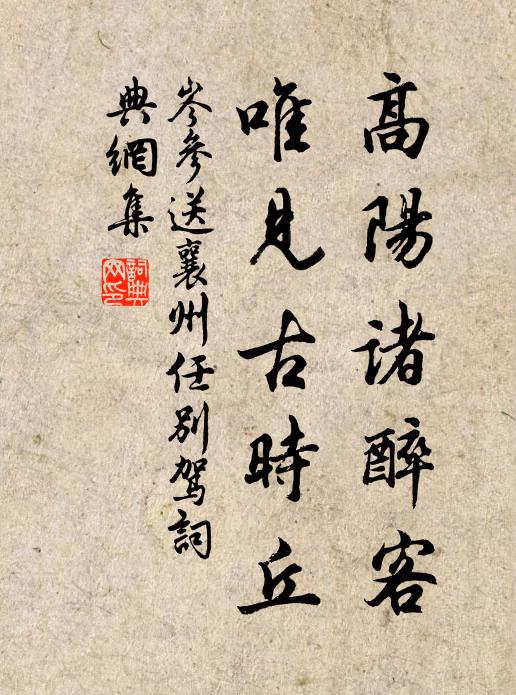 高陽諸醉客
唯見古時丘
岑參送襄州任別駕詞
典網集
詞典網印